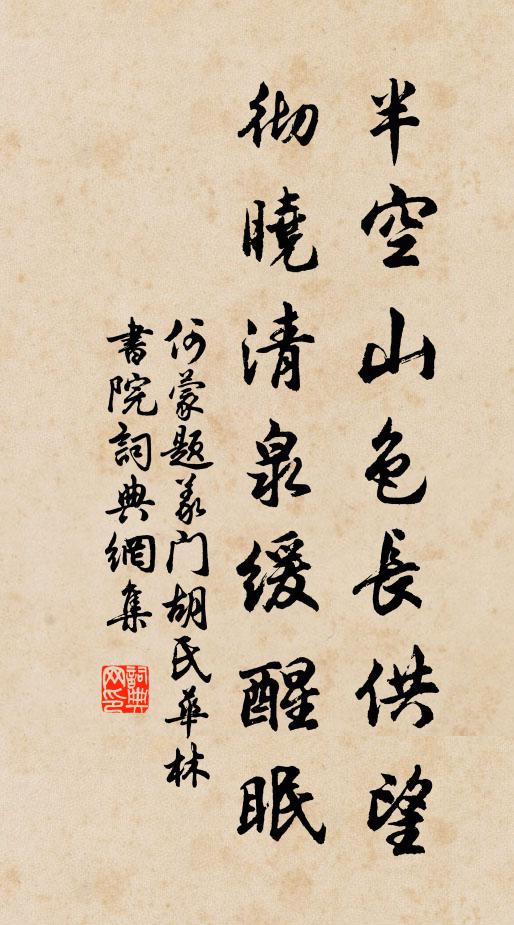 半空山色長供望
彻曉清泉緩醒眠
何蒙題義门胡氏華林
書院詞典網集
詞典
网印